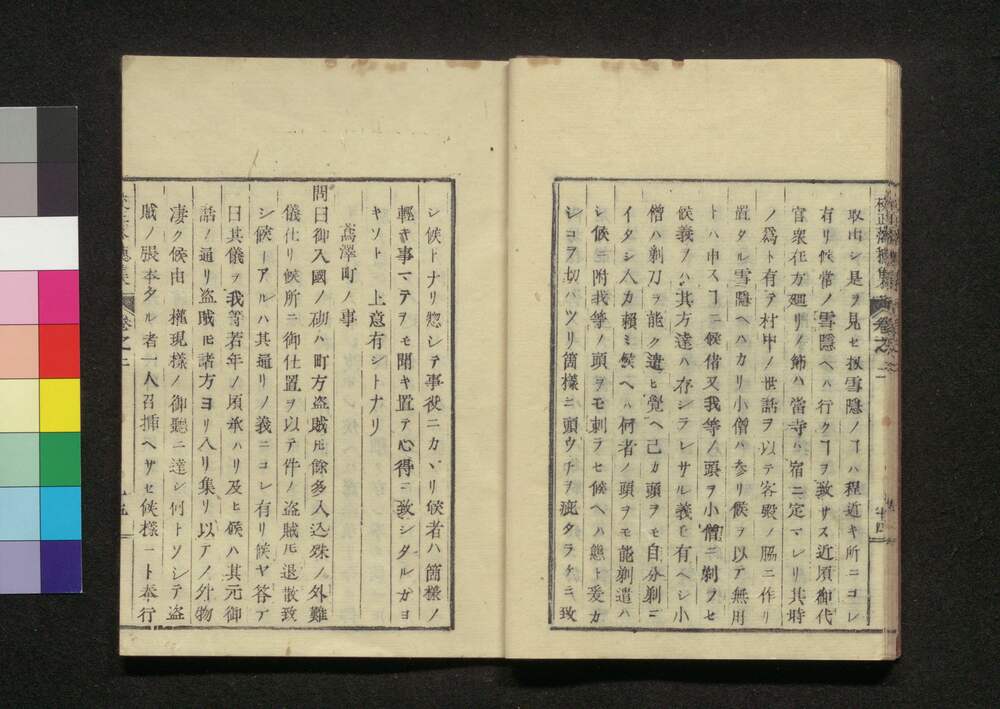 取出シ是ヲ見セ扨雪隠ノコハ程近キ所ニコレ
有リ候常ノ雪隠ヘハ行クコヲ致サス近頃御代
官衆在方廻リノ節ハ當寺ハ宿ニ定マレリ其時
ノ爲ト有テ村中ノ世話ヲ以テ客殿ノ脇ニ作リ
置タル雪隠ヘハカリ小僧ハ参リ候ヲ以テ無用
トハ申スコニ候偖又我等ノ頭ヲ小僧ニ剃ラセ
候義ノハ其方達ハ存シラレサル義モ有ヘシ小
僧ハ剃刀ヲ能ク遣ヒ覺ヘ己カ頭ヲモ自分剃ニ
イタシ人カ頼ミ候ヘハ何者ノ頭ヲモ能剃遣ハ
シ候ニ附我等ノ頭ヲモ剃ラセ候ヘハ態ト爰カ
シコヲ切ハツリ箇様ニ頭ウチヲ疵タラケニ致
シ候トナリ惣シテ事役ニカヽリ候者ハ箇様ノ
輕キ事マテヲモ聞キ置テ心得ニ致シタルガヨ
キソト 上意有シトナリ
高澤町ノ事
問曰御入國ノ砌ハ町方盗賊𪜈餘多入込殊ノ外難
儀仕リ候所ニ御仕置ヲ以テ件ノ盗賊𪜈退散致
シ候トアルハ其通リノ義ニコレ有リ候ヤ答テ
曰其儀ヲ我等若年ノ頃承ハリ及ヒ候ハ其元御
話ノ通リ盗賊𪜈諸方ヨリ入リ集リ以テノ外物
凄ク候由 權現様ノ御聽ニ達シ何トソシテ盗
賊ノ張本タル者一人召捕ヘサセ候様ニト奉行
卷之二
十四